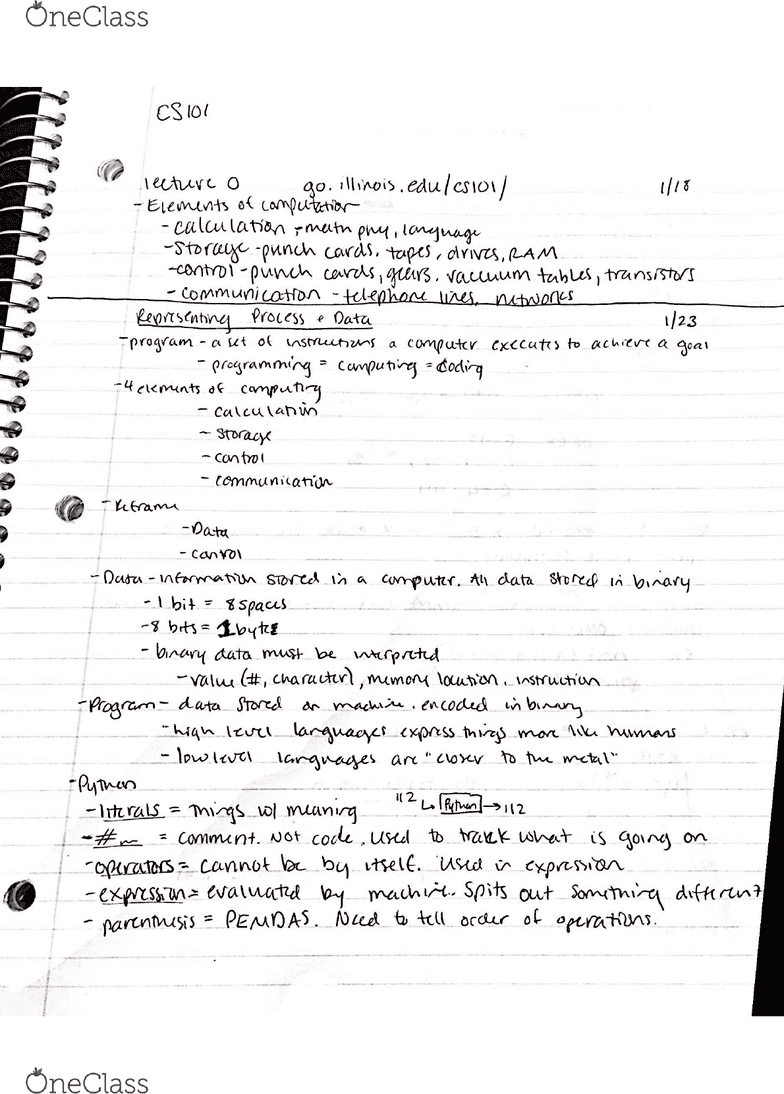 OneClass
CS101
lecture 0 go.illinois.edu/cs101/ 1/18
- Elements of computation
- calculation - math phy, language
- storage - punch cards, tapes, drives, RAM
- control - punch cards, gears, vacuum tables, transistors
- communication - telephone lines, networks
Representing Process + Data 1/23
- program - a set of instructions a computer executes to achieve a goal
- programming = computing = coding
- 4 elements of computing
- calculation
- storage
- control
- communication
- Reframe
- Data
- control
- Data - information stored in a computer. All data stored in binary
- 1 bit = 8 spaces
- 8 bits = 1 byte
- binary data must be interpreted
- value (#, character), memory location, instruction
- Program - data stored on machine. encoded in binary
- high level languages express things more like humans
- low level languages are "closer to the metal"
- Python
- literals = things w/ meaning 112 ↳ Python → 112
- # = comment. Not code. Used to track what is going on
- operators = cannot be by itself. Used in expression
- expression = evaluated by machine. Spits out something different
- parenthesis = PEMDAS. Need to tell order of operations.
OneClass